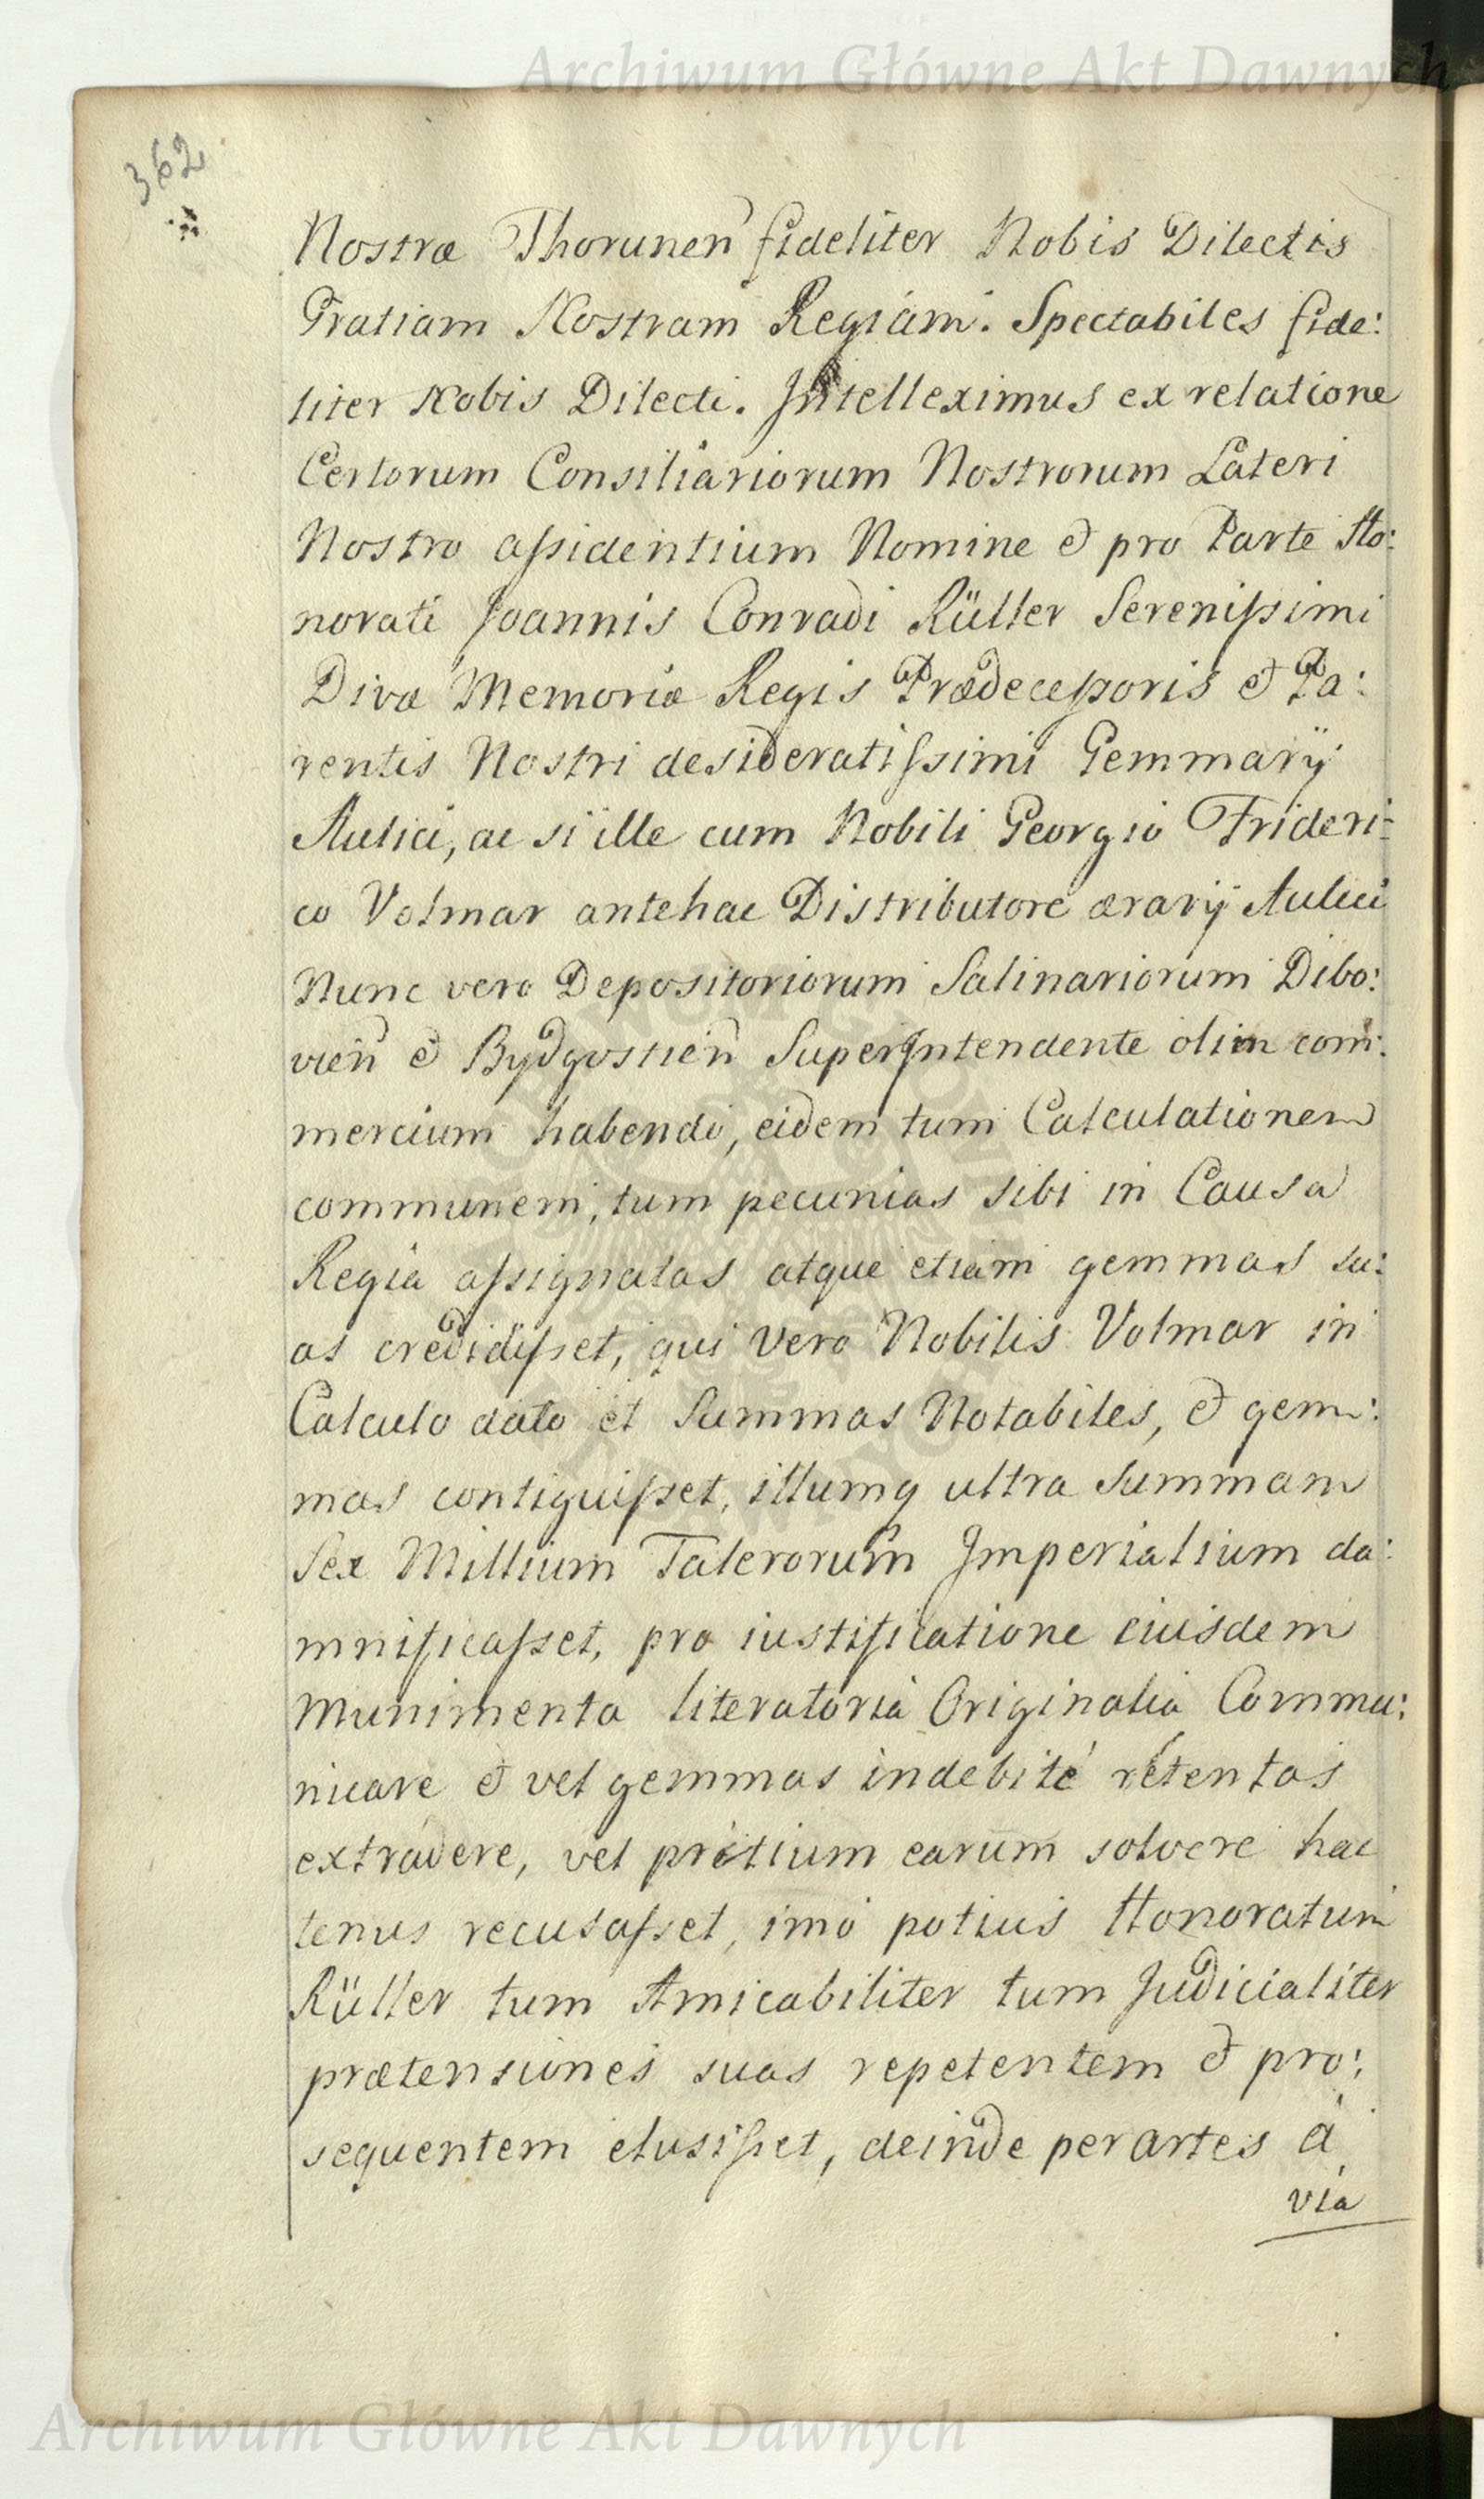 Archiwum Główne Akt Dawnych
362
Nostræ Thorunen fideliter Nobis Dilectis
Gratiam Nostram Regiam. Spectabiles fide:
liter Nobis Dilecti. Intelleximus ex relatione
Certorum Consiliariorum Nostrorum Lateri
Nostro aſsidentium Nomine et pro Parte Ho:
norati Joannis Conradi Rüller Sereniſsimi
Divæ Memoriæ Regis Prædeceſsoris et Pa:
rentis Nostri desideratiſsimi Gemmarÿ
Aulici, ac si ille cum Nobili Georgio Frideri:
co Volmar antehac Distributore ærarÿ Aulici
Nunc vero Depositoriorum Salinariorum Dibo:
vien et Bydgostien SuperIntendente olim com:
mercium habendo, eidem tum Calculationem
communem, tum pecunias sibi in Causa
Regia aſsignatas atque etiam gemmas su:
as credidiſset, qui vero Nobilis Volmar in
Calculo dato et Summas Notabiles, et gem:
mas contiguiſset, illumq ultra Summam
Sex Millium Talerorum Imperialium da:
mnificaſset, pro iustificatione eiusdem
Munimenta literatoria Originalia Commu:
nicare et vel gemmas indebité retentas
extradere, vel prétium earum solvere hac
tenus recusaſset, imò potius Honoratum
Rüller tum Amicabiliter tum Judicialiter
prætensiones suas repetentem et pro:
sequentem elusiſset, deinde per artes à
via
Archiwum Główne Akt Dawnych